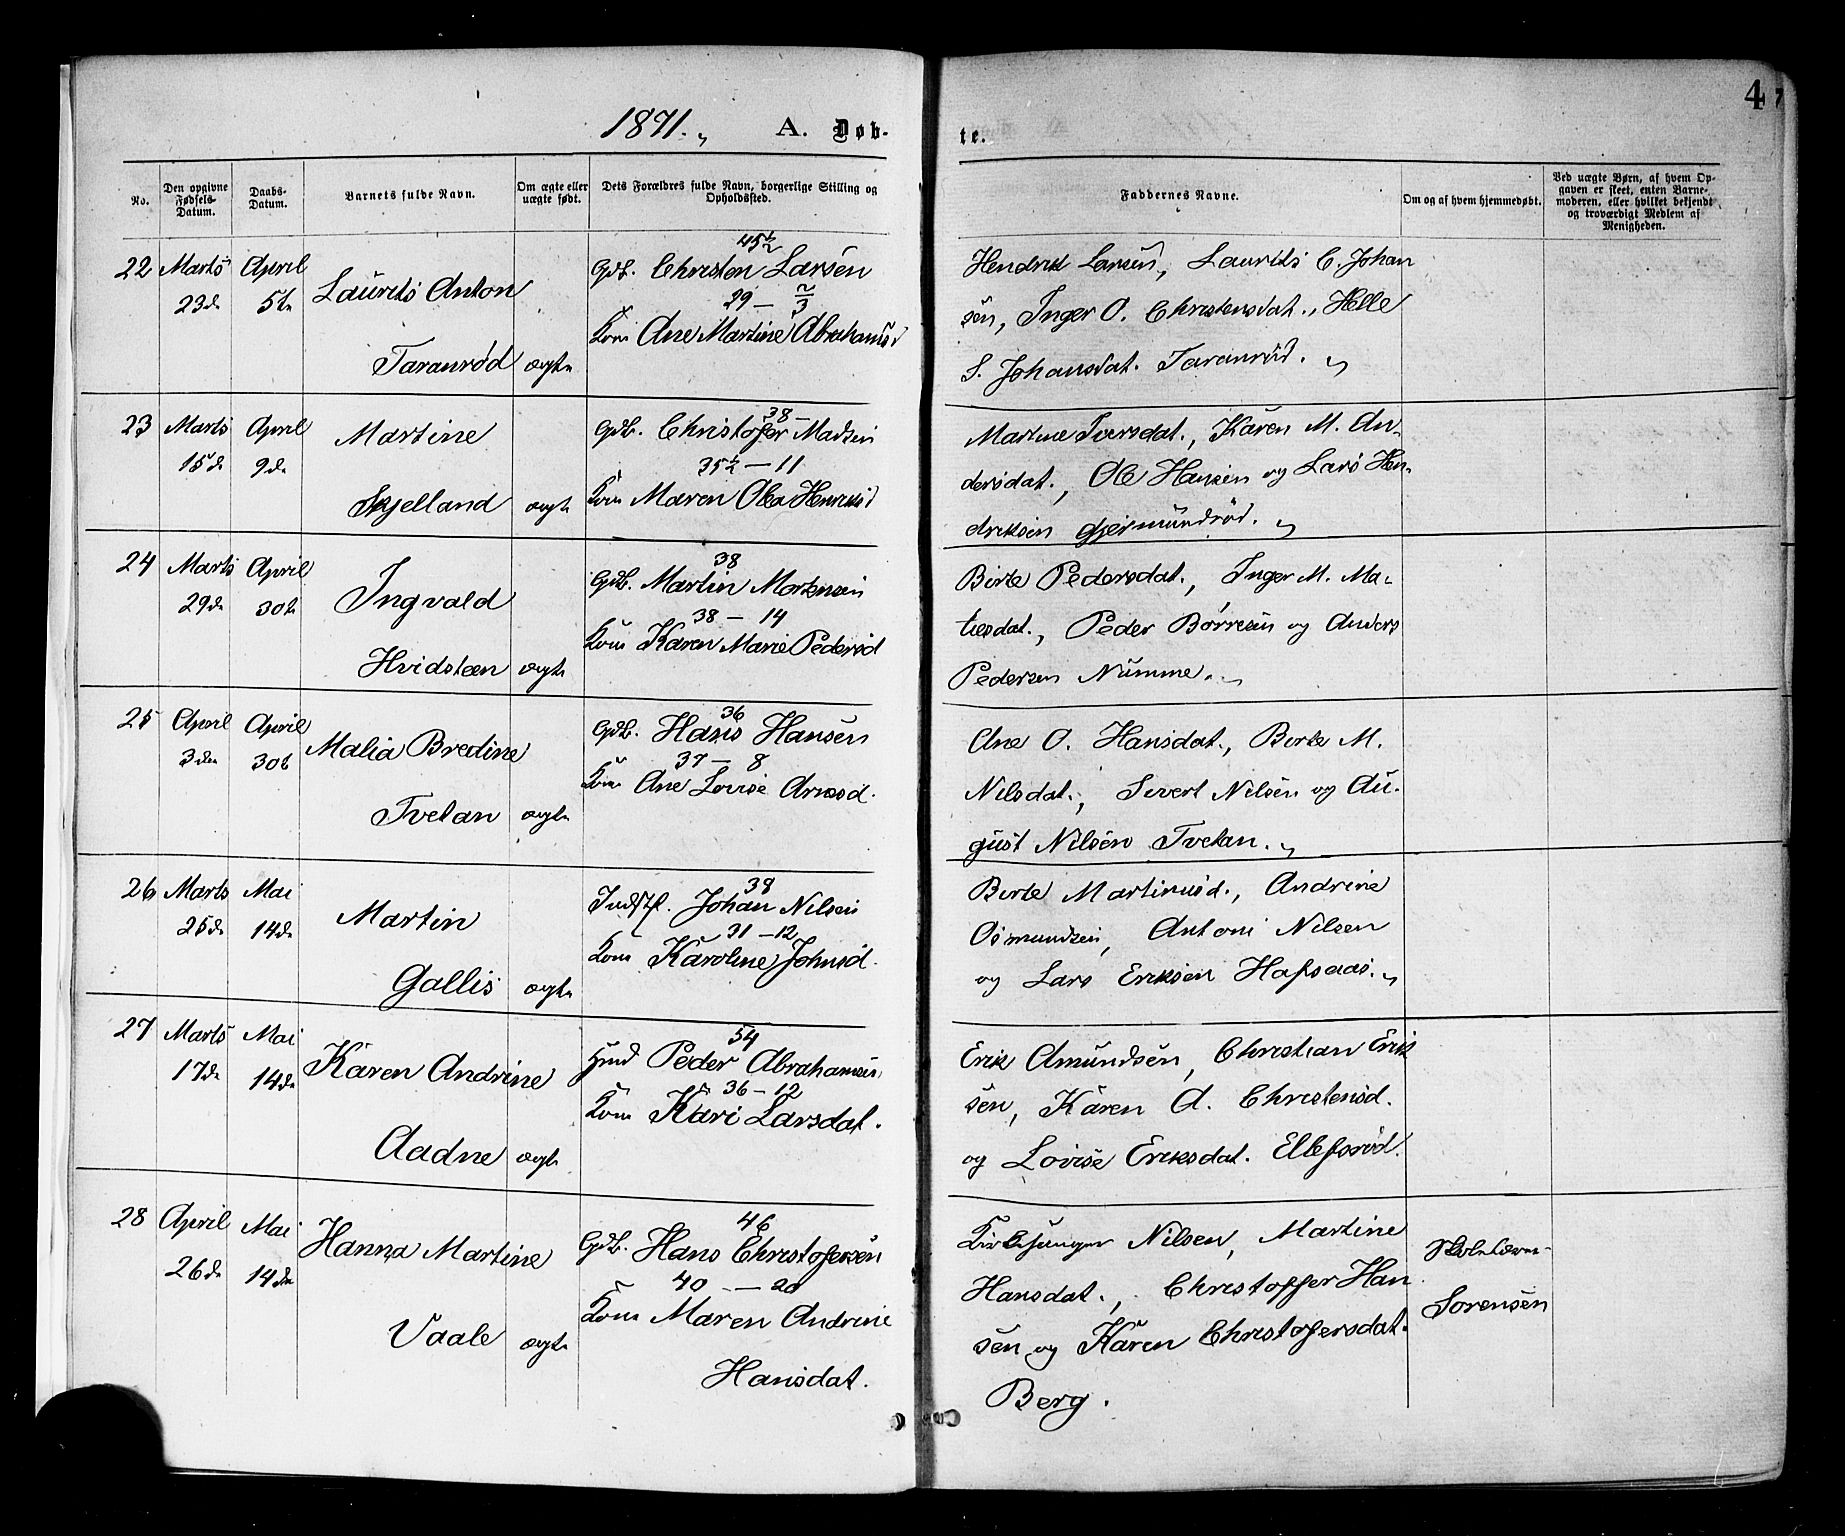 1871. A. Døb-
te.
4
No.
Den opgivne Fødsels-Datum.
Daabs-Datum.
Barnets fulde Navn.
Om ægte eller uægte født.
Dets Forældres fulde Navn, borgerlige Stilling og Opholdssted.
Faddernes Navne.
Om og af hvem hjemmedøbt.
Ved uægte Børn, af hvem Opgaven er skeet, enten Barnemoderen, eller hvilket bekjendt og troværdigt Medlem af Menigheden.
22 Marts April
23de 5te
Laurits Anton
Taranrød ægte
45½
Gdb. Christen Larsen
29 — 2/3
Kone Ane Martine Abrahamsd
Hendrik Larsen, Laurits C. Johan
sen, Inger O. Christensdat., Helle
S. Johansdat. Taranrød.
23 Marts April
15de 9de
Martine
Skjelland ægte
38 —
Gdb. Christofer Madsen
35½ — 11
Kone Maren Olea Henriksd
Martine Iversdat., Karen M. An-
dersdat., Ole Hansen og Lars Hen-
driksen Gjermundrød.
24 Marts April
29de 30te
Ingvald
Hvidsteen ægte
38
Gdb. Martin Mortensen
38 — 14
Kone Karen Marie Pedersd
Birte Pedersdat., Inger M. Ma-
tiesdat., Peder Børresen og Anders
Pedersen Numme.
25 April April
3die 30te
Malia Bredine
Tvetan ægte
36
Gdb. Hans Hansen
37 — 8
Kone Ane Lovise Arnesd.
Ane O. Hansdat., Birte M.
Nilsdat., Sivert Nilsen og Au-
gust Nilsen Tvetan.
26 Marts Mai
25de 14de
Martin
Gallis ægte
38
Indst. Johan Nilsen
31 — 12
Kone Karoline Johnsd.
Birte Martinusd., Andrine
Osmundsen, Antoni Nilsen
og Lars Eriksen Hafsaas.
27 Marts Mai
17de 14de
Karen Andrine
Aadne ægte
54
Hmd Peder Abrahamsen
36 — 12
Kone Kari Larsdat.
Erik Amundsen, Christian Erik
sen, Karen A. Christensd.
og Lovise Eriksdat. Ellefsrød.
28 April Mai
26de 14de
Hanna Martine
Vaale ægte
46
Gdb. Hans Christofersen
40 — 20
Kone Maren Andrine
Hansdat.
Kirkesanger Nilsen, Martine
Hansdat., Christoffer Han
sen og Karen Christofersdat.
Berg.
Skolelærer
Sorensen